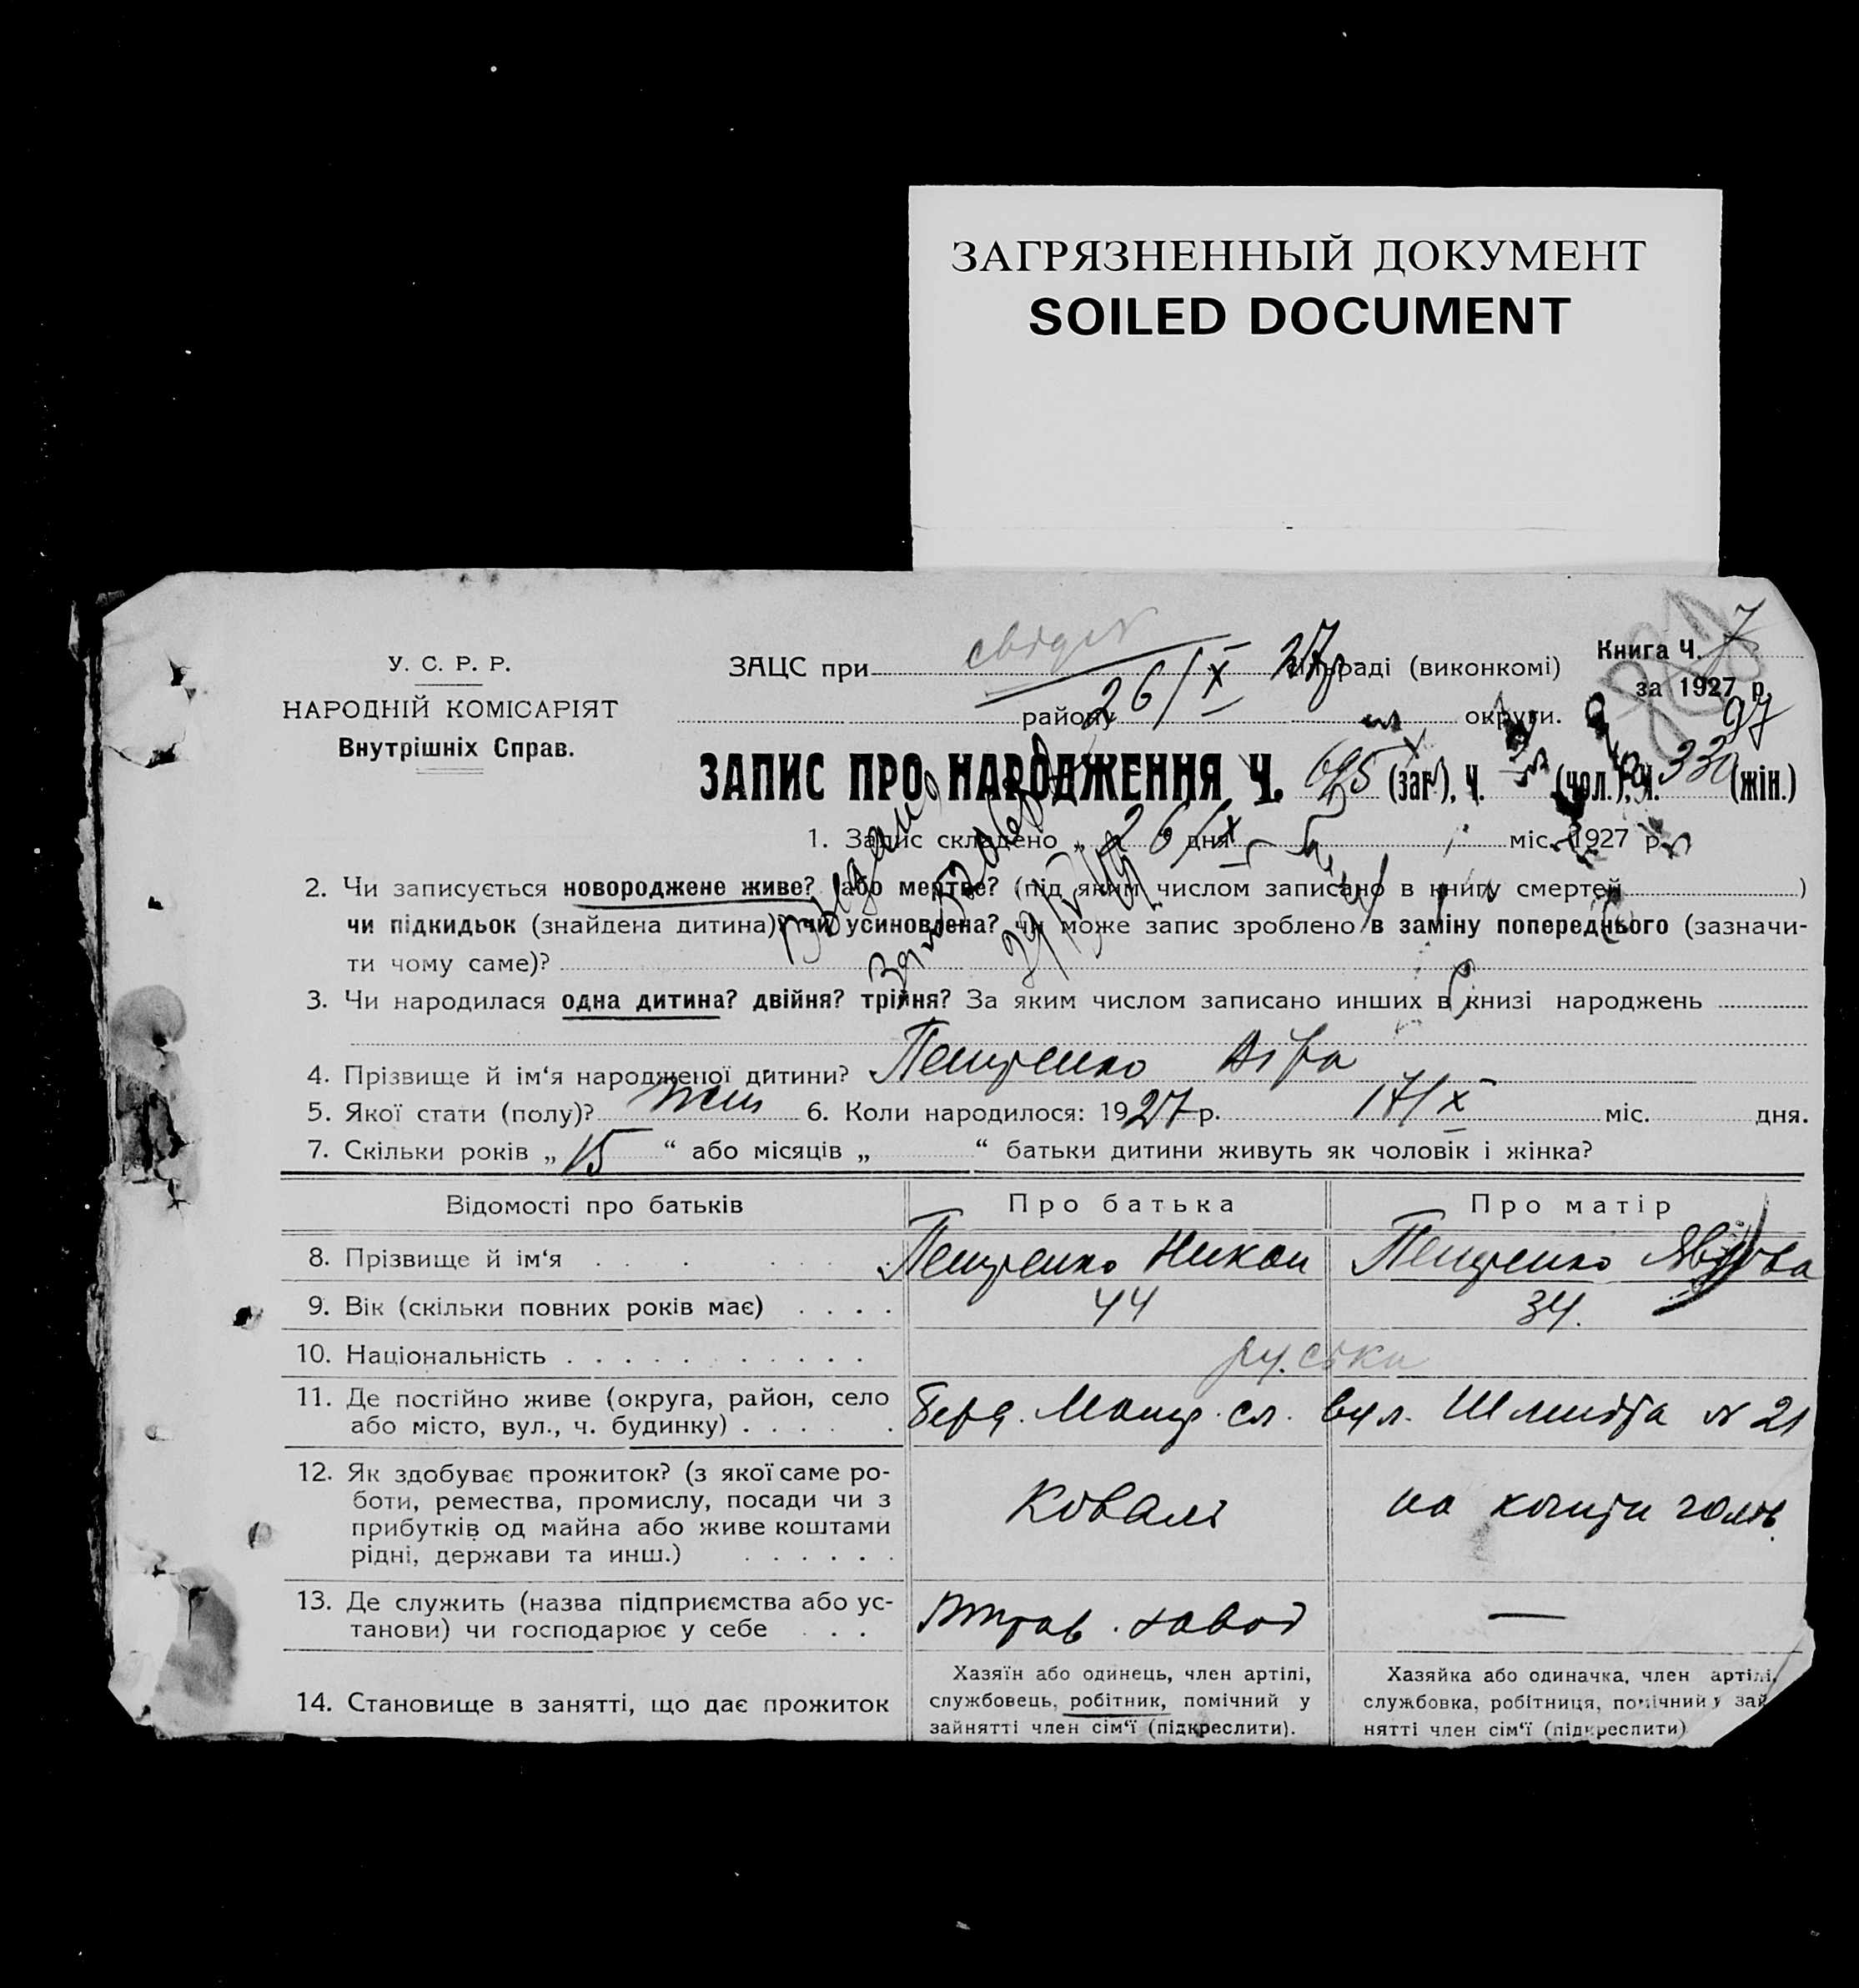 ЗАГРЯЗНЕННЫЙ ДОКУМЕНТ
SOILED DOCUMENT
У. С. Р. Р.
НАРОДНІЙ КОМІСАРІЯТ
Внутрішніх Справ.
ЗАЦС при 26/X 27р сільраді (виконкомі)
району округи.
Книга Ч. 7
за 1927 р.
97
ЗАПИС ПРО НАРОДЖЕННЯ Ч. (заг.), Ч. (чол.), Ч. 330 (жін.)
1. Запис складено „ 26/X дня міс. 1927 р.
2. Чи записується новороджене живе? або мертве? (під яким числом записано в книгу смертей )
чи підкидьок (знайдена дитина)? чи усиновлена? чи може запис зроблено в заміну попереднього (зазначи-
ти чому саме)?
3. Чи народилася одна дитина? двійня? трійня? За яким числом записано инших в книзі народжень
4. Прізвище й ім‘я народженої дитини?
5. Якої стати (полу)? жін 6. Коли народилося: 1927 р. 17/X міс. дня.
7. Скільки років „ 15 “ або місяців „ “ батьки дитини живуть як чоловік і жінка?
Відомості про батьків Про батька Про матір
8. Прізвище й ім‘я Никон
9. Вік (скільки повних років має) 44 34.
10. Національність руська
11. Де постійно живе (округа, район, село
або місто, вул., ч. будинку) сл. вул. Шмидта № 21
12. Як здобуває прожиток? (з якої саме ро-
боти, ремества, промислу, посади чи з
прибутків од майна або живе коштами
рідні, держави та инш.)
Коваль на кошти чолов.
13. Де служить (назва підприємства або ус-
танови) чи господарює у себе завод —
14. Становище в занятті, що дає прожиток
Хазяїн або одинець, член артілі,
службовець, робітник, помічний у
зайнятті член сім‘ї (підкреслити).
Хазяйка або одиначка, член артілі,
службовка, робітниця, помічний у зай
нятті член сім‘ї (підкреслити)